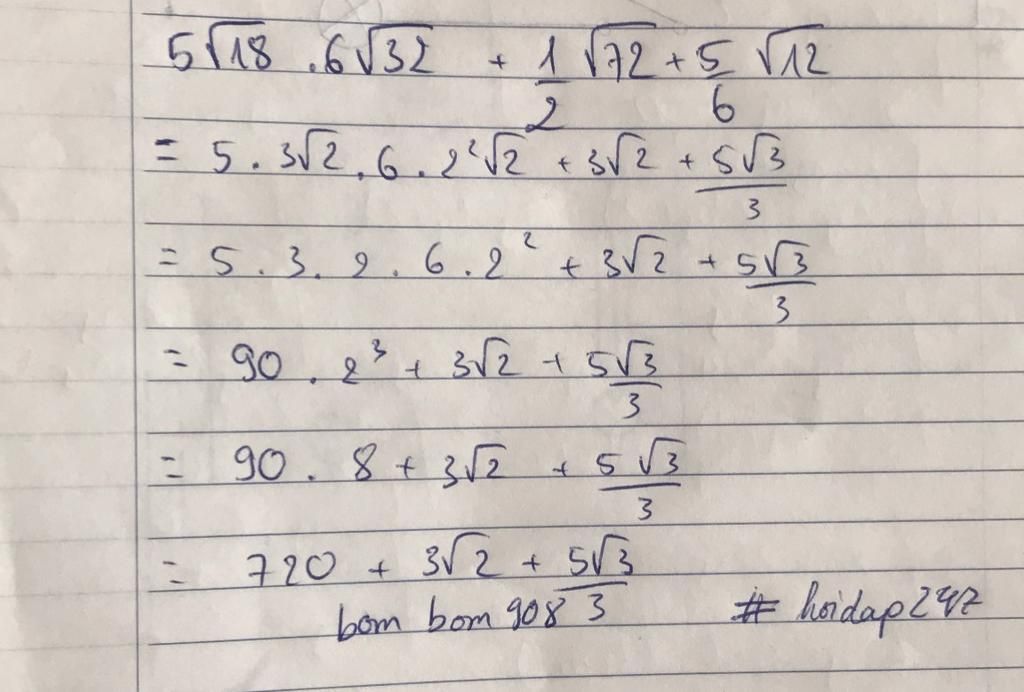 5√18 . 6√32 + 1/2 √72 + 5/6 √12
= 5 . 3√2 . 6 . 2²√2 + 3√2 + 5√3/3
= 5 . 3 . 2 . 6 . 2² + 3√2 + 5√3/3
= 90 . 2³ + 3√2 + 5√3/3
= 90 . 8 + 3√2 + 5√3/3
= 720 + 3√2 + 5√3/3
bom bom 908 # hoidap247